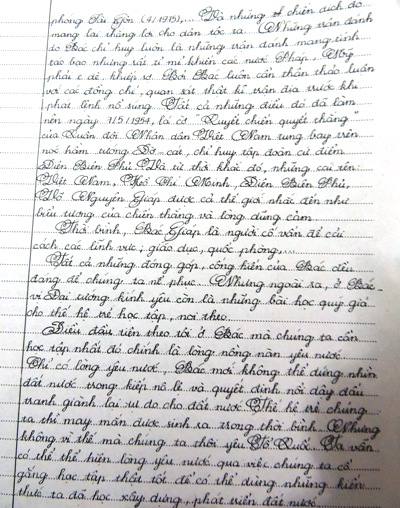 phóng Sài Gòn (4/1975),... Và những chiến dịch đó
mang lại thắng lợi cho dân tộc ta. Những trận đánh
do Bác chỉ huy luôn là những trận đánh mang tính
táo bạo nhưng rất tỉ mỉ khiến các nước Pháp, Mỹ
phải e dè, khiếp sợ. Bởi Bác luôn cẩn thận thảo luận
với các đồng chí, quan sát thật kĩ trận địa trước khi
phát lệnh nổ súng. Tất cả những điều đó đã làm
nên ngày 7/5/1954, lá cờ "Quyết chiến quyết thắng"
của Quân đội Nhân dân Việt Nam tung bay trên
nóc hầm tướng Đờ-cat, chỉ huy tập đoàn cứ điểm
Điện Biên Phủ. Và từ thời khắc đó, những cái tên:
Việt Nam, Hồ Chí Minh, Điện Biên Phủ,
Võ Nguyên Giáp được cả thế giới nhắc đến như
biểu tượng của chiến thắng và lòng dũng cảm.
Thời bình, Bác Giáp là người cố vấn để cải
cách các lĩnh vực, giáo dục, quốc phòng,...
Tất cả những đóng góp, cống hiến của Bác đều
đáng để chúng ta nể phục. Nhưng ngoài ra, ở Bác
vị Đại tướng kính yêu còn là những bài học quý giá
cho thế hệ trẻ học tập, noi theo.
Điều đầu tiên theo tôi ở Bác mà chúng ta cần
học tập nhất đó chính là lòng nồng nàn yêu nước.
Chỉ có lòng yêu nước, Bác mới không thể đứng nhìn
đất nước trong kiếp nô lệ và quyết định nổi dậy đấu
tranh giành lại tự do cho đất nước. Thế hệ trẻ chúng
ta thì may mắn được sinh ra trong thời bình. Nhưng
không vì thế mà chúng ta thôi yêu Tổ Quốc. Ta vẫn
có thể thể hiện lòng yêu nước qua việc chúng ta cố
gắng học tập thật tốt để có thể dùng những kiến
thức ta đã học xây dựng, phát triển đất nước.